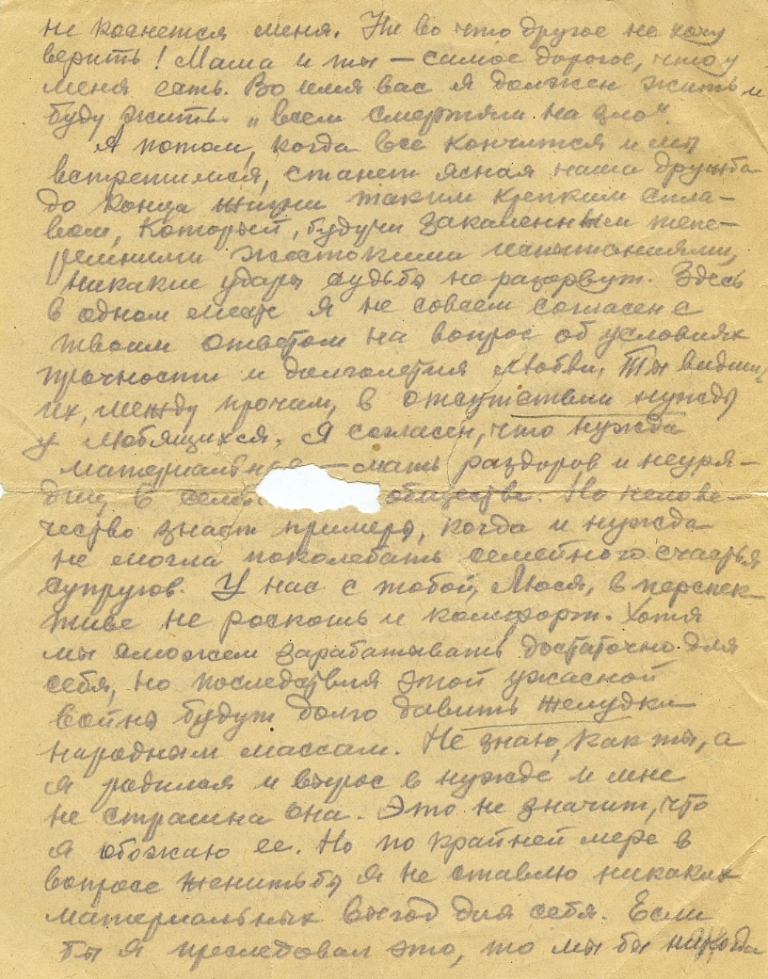 не коснется меня. Ни во что другое не хочу
верить! Мама и ты — самое дорогое, что у
меня есть. Во имя вас я должен жить и
буду жить „всем смертям на зло“.
А потом, когда все кончится и мы
встретимся, станет ясная наша дружба
до конца жизни таким крепким спла-
вом, который, будучи закаленным тепе-
решними жестокими испытаниями,
никакие удары судьбы не разорвут. Здесь
в одном месте я не совсем согласен с
твоим ответом на вопрос об условиях
прочности и долголетия любви. Ты видишь
их, между прочим, в отсутствии нужды
у любящихся. Я согласен, что нужда
материальная — мать раздоров и неуря-
диц в обществе. Но челове-
чество знает примеры, когда и нужда
не могла поколебать семейного счастья
супругов. У нас с тобой, Люся, в перспек-
тиве не роскошь и комфорт. Хотя
мы сможем зарабатывать достаточно для
себя, но последствия этой ужасной
войны будут долго давить желудки
народным массам. Не знаю, как ты, а
я родился и вырос в нужде и мне
не страшна она. Это не значит, что
я обожаю ее. Но по крайней мере в
вопросе женитьбы я не ставлю никаких
материальных выгод для себя. Если
бы я преследовал это, то мы бы никогда